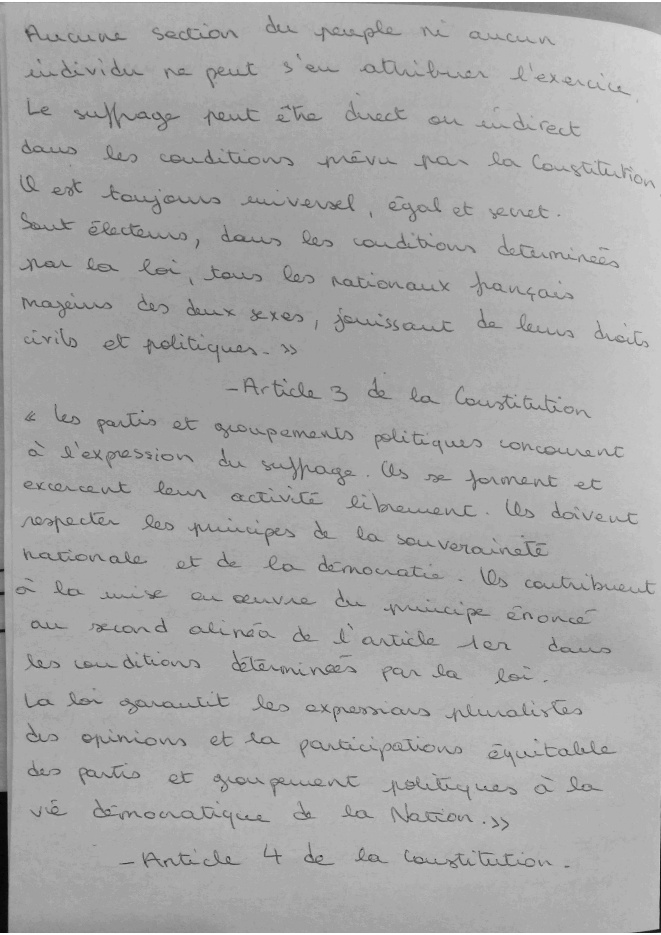 Aucune section du peuple ni aucun
individu ne peut s'en attribuer l'exercice.
Le suffrage peut être direct ou indirect
dans les conditions prévu par la Constitution
Il est toujours universel, égal et secret.
Sont électeurs, dans les conditions determinées
par la loi, tous les nationaux français
majeurs des deux sexes, jouissant de leurs droits
civils et politiques. »
- Article 3 de la Constitution
« Les partis et groupements politiques concourent
à l'expression du suffrage. Ils se forment et
excercent leur activité librement. Ils doivent
respecter les principes de la souveraineté
nationale et de la démocratie. Ils contribuent
à la mise en œuvre du principe énoncé
au second alinéa de l'article 1er dans
les conditions déterminées par la loi.
La loi garantit les expressions pluralistes
des opinions et la participations équitable
des partis et groupement politiques à la
vie démocratique de la Nation. »
- Article 4 de la Constitution.